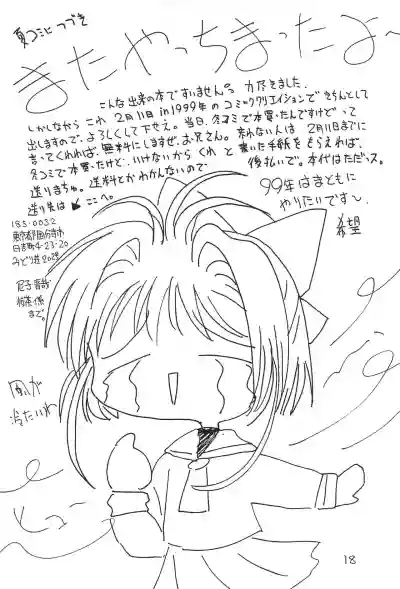 夏コミに つづき
またやっちまったよ〜
こんな出来の本ですいません。 力尽きました。
しかしながら これ 2月11日 in 1999年の コミッククリエイションで きちんとして
出しますので、よろしくして下せえ。当日、冬コミで本買ったんですけど って
言ってくれれば、無料にしますぜ、お兄さん。来れない人は 2月11日までに
冬コミで本買ったけど、いけないから くれ と 書いた手紙をもらえれば、
送りまちゅ。送料とかわかんないので 後払いで。本代はただっス。
送り先は ここへ。
99年はまともに
やりたいです〜
希望
185-0032
東京都国分寺市
日吉町4-23-20
みどり荘202号
係
まで。
風が
冷たいわ
ヒュー
18